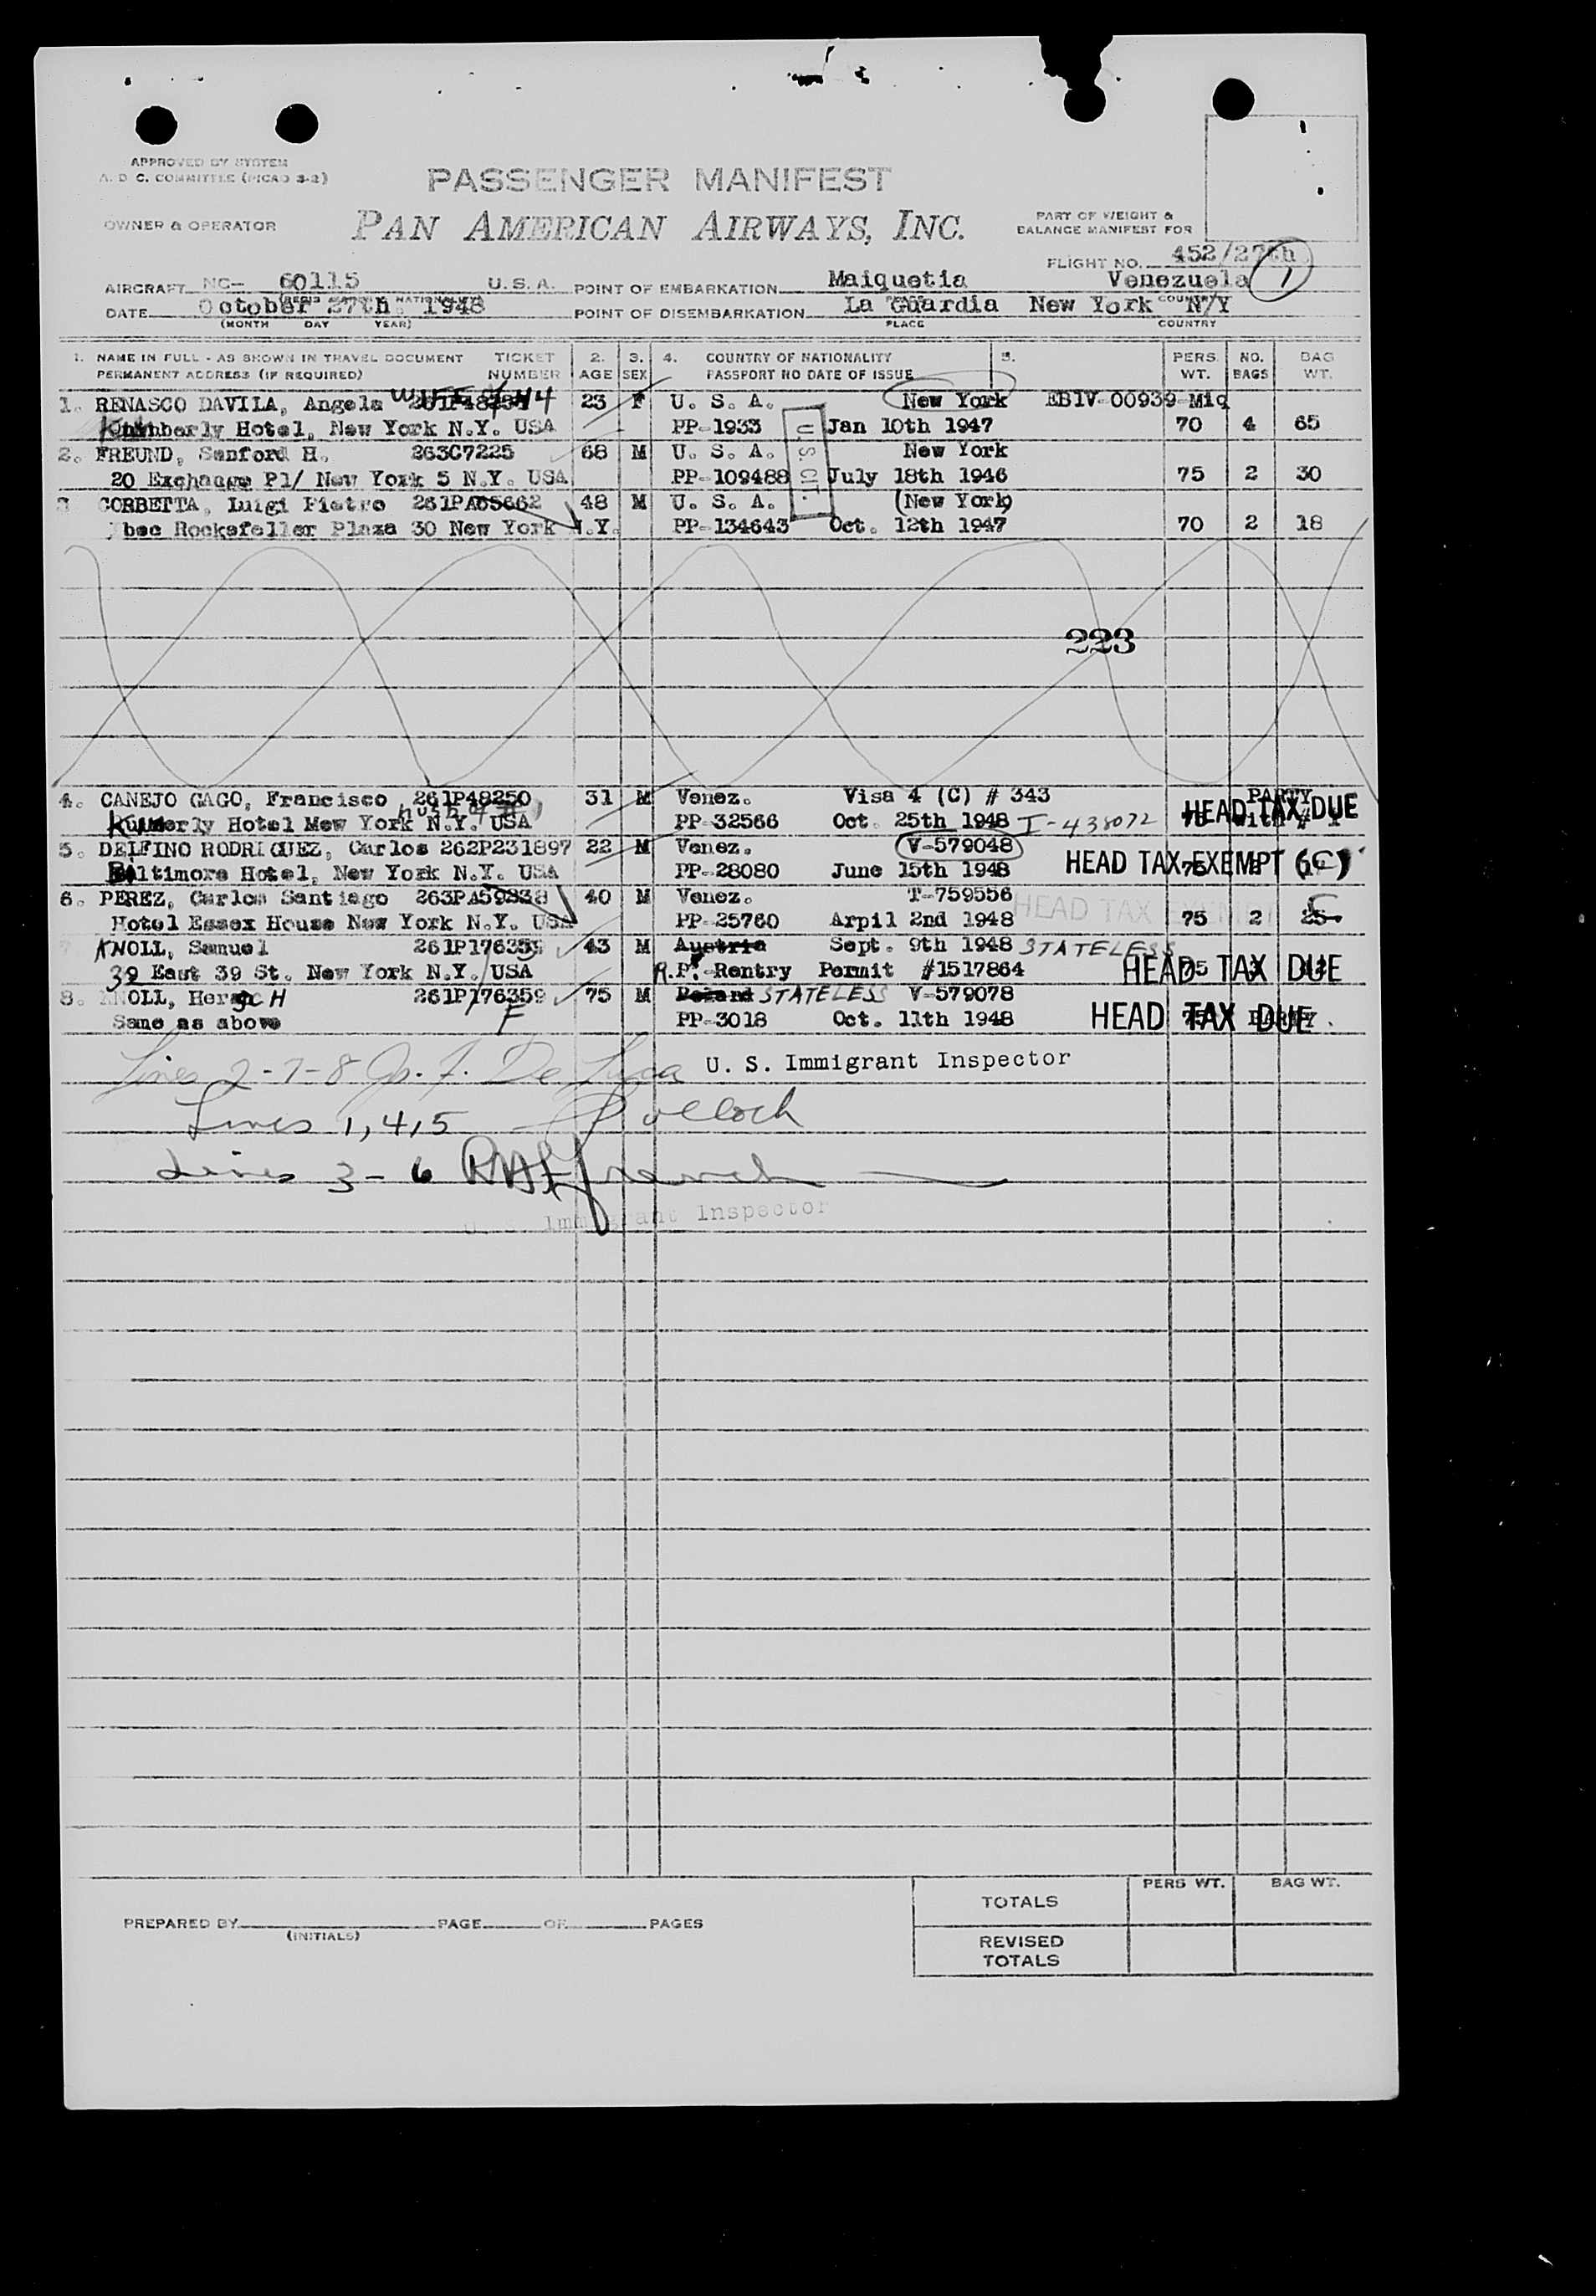 APPROVED BY SYSTEM
A. D C. COMMITTEE (PICAO 3-2)
PASSENGER MANIFEST
OWNER & OPERATOR
PAN AMERICAN AIRWAYS, INC.
PART OF WEIGHT &
BALANCE MANIFEST FOR
FLIGHT NO. 452/27th
1
AIRCRAFT NC- 60115 U.S.A. POINT OF EMBARKATION Maiquetia Venezuela
DATE October 27th 1948 POINT OF DISEMBARKATION La Guardia New York N/Y
(MONTH DAY YEAR) PLACE COUNTRY
1. NAME IN FULL - AS SHOWN IN TRAVEL DOCUMENT TICKET 2. 3. 4. COUNTRY OF NATIONALITY 5. PERS NO. BAG
PERMANENT ADDRESS (IF REQUIRED) NUMBER AGE SEX PASSPORT NO DATE OF ISSUE WT. BAGS WT.
1. RENASCO DAVILA, Angela WIFE # 4 23 F U. S. A. New York EBIV-00939-Miq
Kimberly Hotel, New York N.Y. USA PP-1933 Jan 10th 1947 70 4 65
U.S. CIT.
2. FREUND, Sanford H. 263C7225 68 M U. S. A. New York
20 Exchange Pl/ New York 5 N.Y. USA PP-109488 July 18th 1946 75 2 30
3 CORBETTA, Luigi Pietro 261PA65662 48 M U. S. A. (New York)
bec Rockefeller Plaza 30 New York N.Y. PP-134643 Oct. 12th 1947 70 2 18
223
4. CANEJO GAGO, Francisco 261P48250 31 M Venez. Visa 4 (C) # 343 PARTY
Kimberly Hotel Mew York N.Y. USA PP-32566 Oct. 25th 1948 I-438072 75 with # 1 HEAD TAX DUE
5. DELFINO RODRIGUEZ, Carlos 262P231897 22 M Venez. V-579048
Biltimore Hotel, New York N.Y. USA PP-28080 June 15th 1948 75 HEAD TAX EXEMPT (C)
6. PEREZ, Carlos Santiago 263PA59838 40 M Venez. T-759556 HEAD TAX EXEMPT C
Hotel Essex House New York N.Y. USA PP-25760 Arpil 2nd 1948 75 2 25
7 KNOLL, Samuel 261P176359 43 M Austria Sept. 9th 1948 STATELESS
39 East 39 St. New York N.Y. USA R.P. Rentry Permit #1517864 75 HEAD TAX DUE
8. KNOLL, HersCH 261P176359 75 M Poland STATELESS V-579078
Same as above F PP-3018 Oct. 11th 1948 75 PARTY. HEAD TAX DUE
Lines 2-7-8 De Luca U. S. Immigrant Inspector
Lines 1,4,5
Lines 3-6
U. S. Immigrant Inspector
PERS WT. BAG WT.
TOTALS
PREPARED BY PAGE OF PAGES
(INITIALS)
REVISED
TOTALS